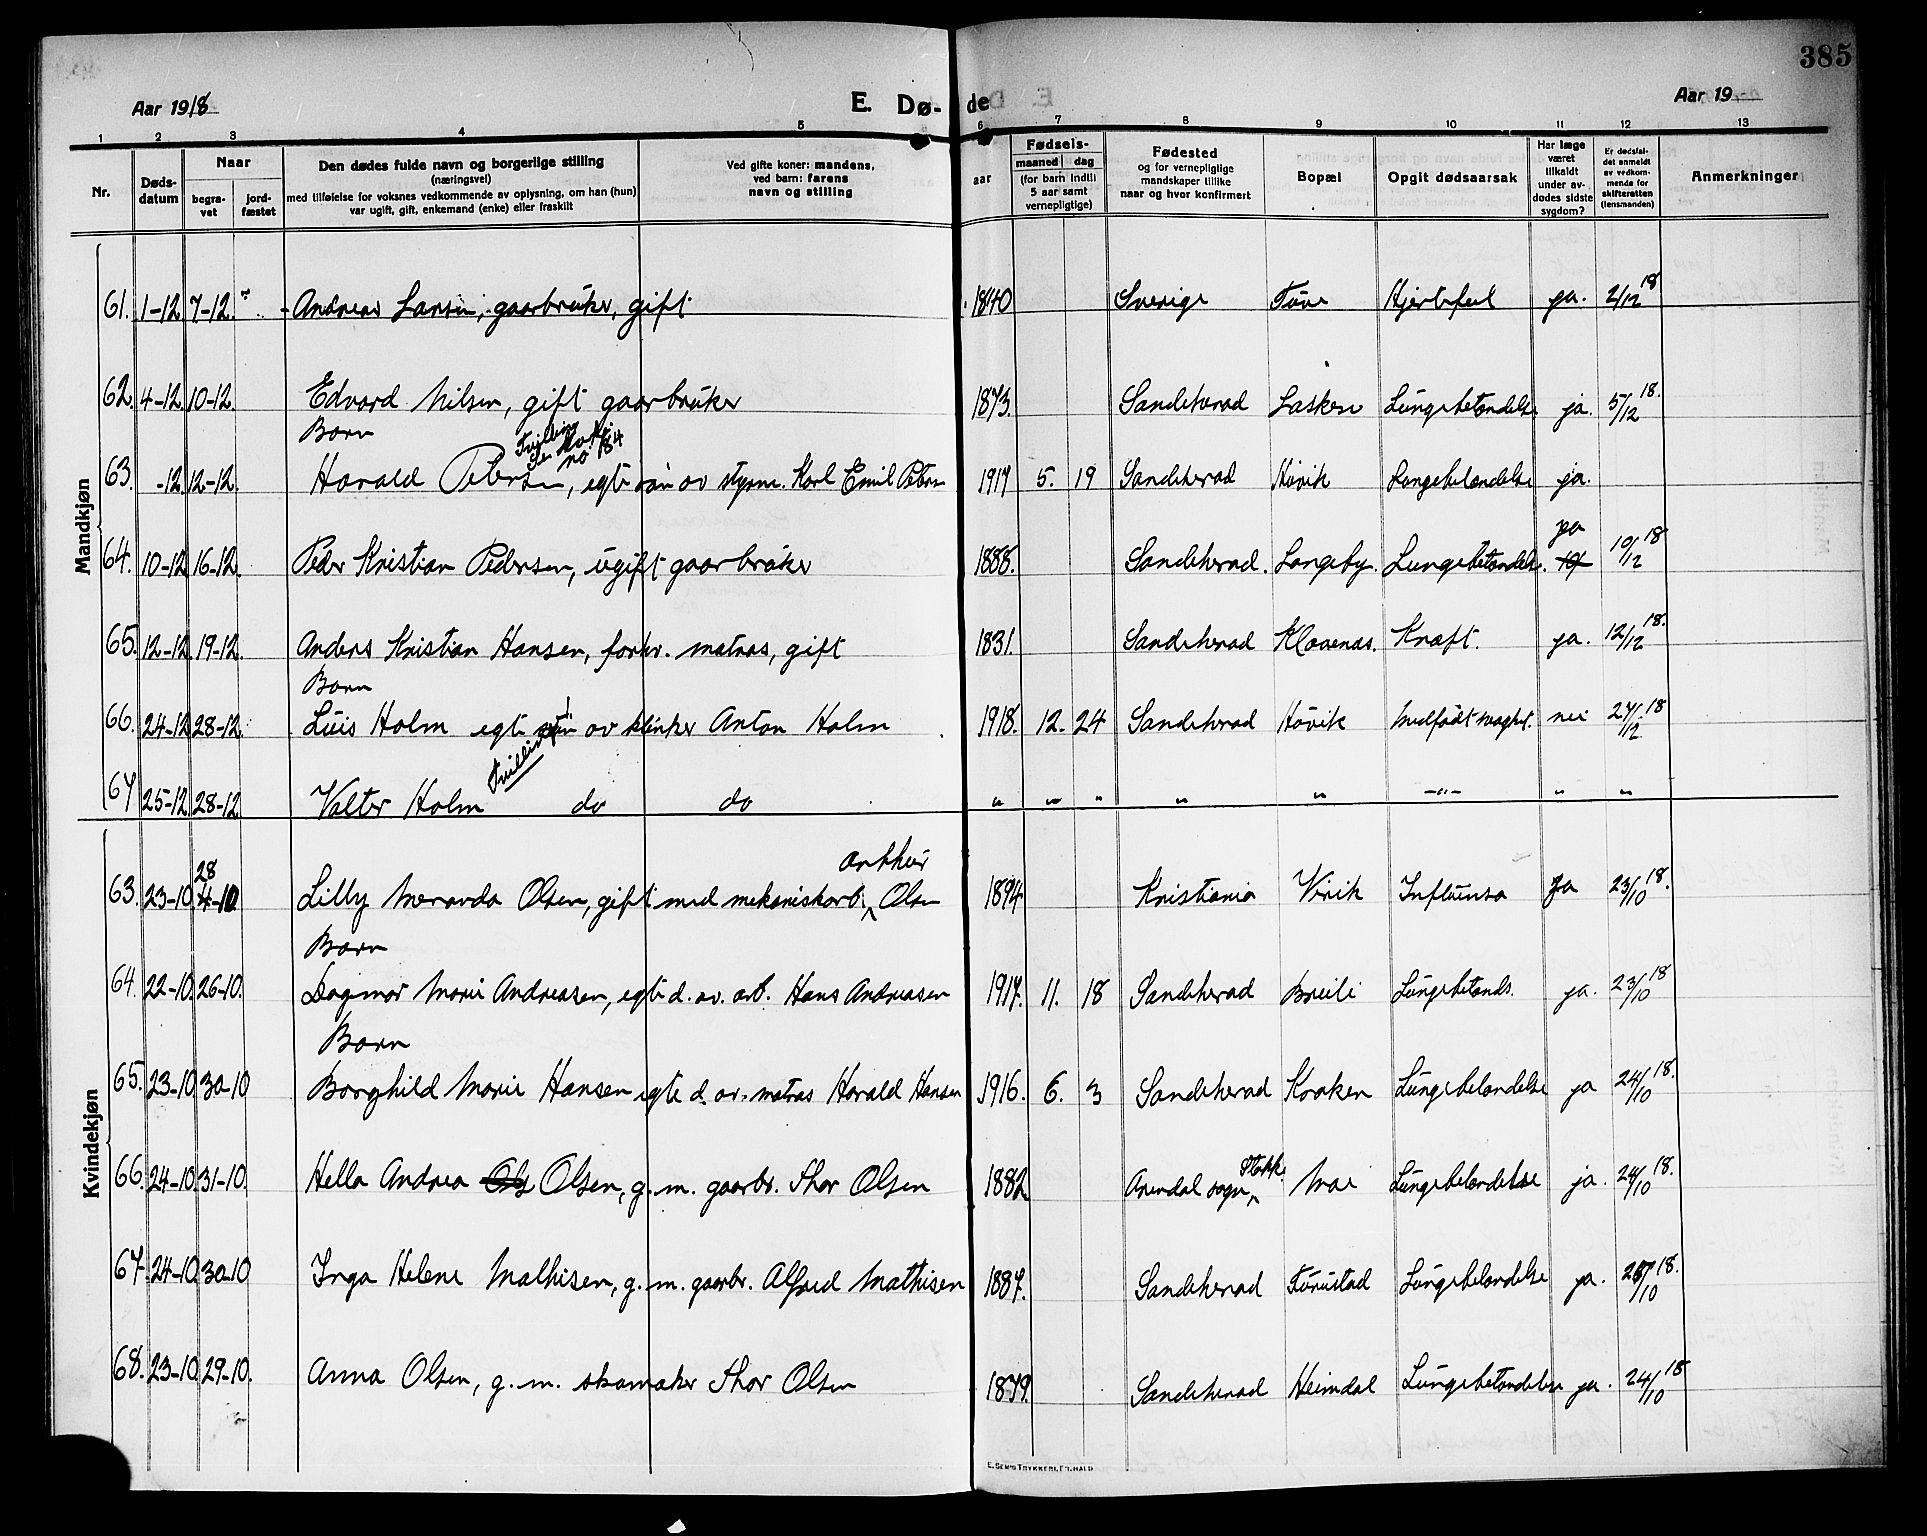 385
Aar 1918 E. Dø- de Aar 19
1 2 3 4 5 6 7 8 9 10 11 12 13
Nr.
Døds-
datum
Naar
begra-
vet
jord-
fæstet
Den dødes fulde navn og borgerlige stilling
(næringsvei)
med tilføielse for voksnes vedkommende av oplysning, om han (hun)
var ugift, gift, enkemand (enke) eller fraskilt
Ved gifte koner: mandens,
ved barn: farens
navn og stilling
aar
Fødsels-
maaned dag
(for barn indtil
5 aar samt
vernepligtige)
Fødested
og for vernepligtige
mandskaper tillike
naar og hvor konfirmert
Bopæl
Opgit dødsaarsak
Har læge
været
tilkaldt
under av-
dødes sidste
sygdom?
Er dødsfal-
det anmeldt
av vedkom-
mende for
skifteretten
(lensmanden)
Anmerkninger
Mandkjøn
61. 1-12 7-12. Andreas Larsen, gaarbruker, gift 1840 Sverige Tuve Hjertefeil ja. 2/12 18
62. 4-12 10-12. Edvard Nilsen, gift gaarbruker 1873. Sandeherad Lasken Lungebetændelse ja. 5/12 18.
Barn
Tvilling
63. -12. 12-12. Harald Petersen, egte søn av styrm. Karl Emil Petersen 1917 5. 19 Sandeherad Høvik Lungebetændelse ja.
ja
64. 10-12 16-12. Peder Kristian Pedersen, ugift gaarbruker 1888. Sandeherad. Langeby. Lungebetændelse. 10/12 18
65. 12-12. 19-12. Anders Kristian Hansen, forhv. matros, gift 1831. Sandeherad Klavenæs. Kræft. ja. 12/12 18.
Barn
66. 24-12 28-12. Luis Holm egte søn av klinker Anton Holm 1918. 12. 24 Sandeherad Høvik Medfødt svaghet. nei 27/12 18
Tvilling
67 25-12 28-12 Valter Holm do do " " " " " -"- " "
Kvindekjøn
28 Arthur
63. 23-10 4-10 Lilly Meranda Olsen, gift med mekaniskarb. ^ Olsen 1894 Kristiania Virik Influensa Ja 23/10 18.
Barn
64. 22-10. 26-10. Dagmar Marie Andreasen, egte d. av. arb. Hans Andreasen 1917. 11. 18 Sandeherad Breili Lungebetænds. ja. 23/10 18
Barn
65. 23-10 30-10 Borghild Marie Hansen egte d. av. matros Harald Hansen 1916. 6. 3 Sandeherad Kraaken Lungebetændelse ja 24/10 18.
Stokke
66. 24-10. 31-10. Hella Andrea Olsen, g. m. gaarbr. Thor Olsen 1882 Arendal sogn ^ Moe Lungebetændelse ja. 24/10 18.
67. 24-10 30-10 Inga Helene Mathisen, g. m. gaarbr. Alfred Mathisen 1887. Sandeherad Furustad Lungebetændelse ja. 26/10 18.
68. 23-10 29-10. Anna Olsen, g. m. skomaker Thor Olsen 1879. Sandeherad Heimdal Lungebetændelse ja. 24/10 18
E. SEMS TRYKKERI, FR.HALD